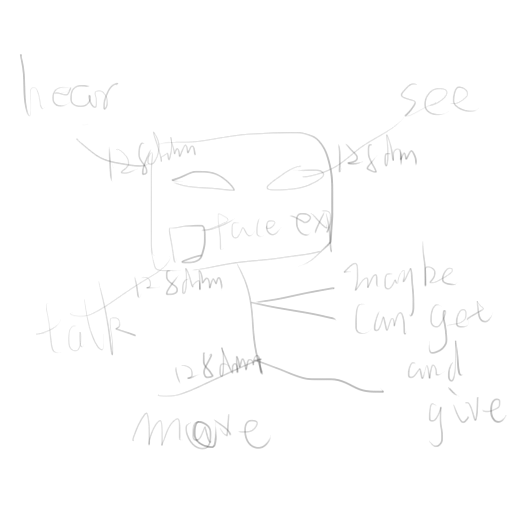 hear
see
128dim
128dim
face exp
128dim
talk
maybe
can get
and
give
128dim
move